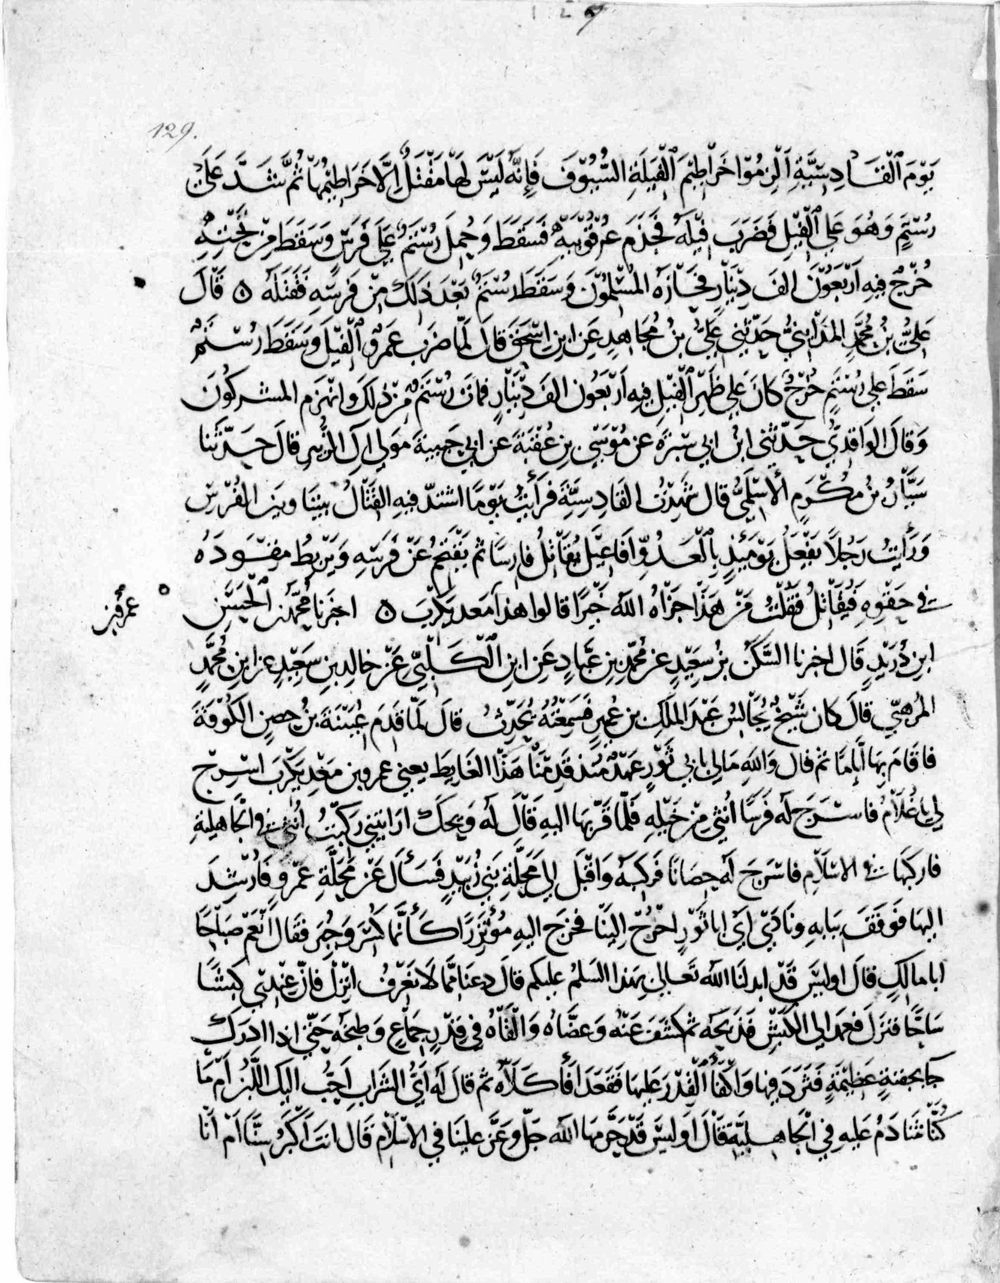 129.
يَوْمَ ٱلْقَادِسِيَّةِ اَلْزِمُوْا خَرَاطِيْمَ ٱلْفِيَلَةِ السُّيُوْفَ فَإِنَّهُ لَيْسَ لَهَا مَقْتَلٌ إِلَّا خَرَاطِيْمُهَا ثُمَّ شَدَّ عَلَى
رُسْتَمٍ وَهُوَ عَلَى ٱلْفِيْلِ فَضَرَبَ فِيْلَهُ فَجَذَمَ عُرْقُوْبَيْهِ فَسَقَطَ وَحُمِلَ رُسْتَمٌ عَلَى فَرَسٍ وَسَقَطَ مِنْ تَحْتِهِ
خُرْجٌ فِيهِ اَرْبَعُوْنَ الفَ دِيْنَارٍ فَحَازَهُ المُسْلِمُوْنَ وَسَقَطَ رُسْتَمٌ بَعْدَ ذَلِكَ مِنْ فَرَسِهِ فَقَتَلَهُ ٥ قَالَ
عَلِيُّ بنُ مُحَمَّدٍ المَدَايِنيُّ حَدَّثَنِي عَلِيُّ بنُ مُجَاهِدٍ عَنِ ابنِ اسْحَقَ قَالَ لَمَّا ضَرَبَ عَمْرٌو ٱلْفِيْلَ وَسَقَطَ رُسْتَمٌ
سَقَطَ عَلى رُسْتَمٍ خُرْجٌ كَانَ عَلى ظَهْرِ ٱلْفِيْلِ فِيهِ اَرْبَعُونَ الفَ دِيْنَارٍ فَمَاتَ رُسْتَمٌ مِنْ ذلِكَ وانهَزَمَ المشركُونَ
وَقالَ الوَاقِدِيُّ حَدَّثَني ابنُ ابي سَبْرَةَ عَنْ مُوْسَى بنِ عُقْبَةَ عن ابي حَبِيبَةَ مَولى الِ الزُّبَيرِ قالَ حَدَّثَنَا
نِيَّارُ بنُ مُكْرَمٍ الأَسْلَمِيُّ قال شَهِدْتُ القَادِسِيَّةَ فَرَأَيْتُ يَوْمًا اشْتَدَّ فيهِ القِتَالُ بَيْنَنَا وبَينَ الفُرْسِ
وَرَأَيْتُ رَجُلاً يَفْعَلُ يَوْمَئِذٍ بِالْعَدُوِّ اَفَاعِيْلَ يُقَاتِلُ فَارِسًا ثُمَّ يَقْتَحِمُ عَنْ فَرَسِهِ وَيَرْبِطُ مِقْوَدَهُ
في حَقْوِهِ فَيُقَاتِلُ فَقُلْتُ مَنْ هَذَا جَزَاهُ اللهُ خَيْرًا قالوا هذا مَعدِيكَرِبَ ٥ اخبَرَنا مُحَمَّدُ بن الْحَسَنِ
عمرو بن
ابنِ دُرَيْدٍ قَالَ اخبرنا السَّكَنُ بنُ سَعِيْدٍ عن مُحَمَّدِ بنِ عَبَّادٍ عَنِ ابنِ الْكَلْبِيِّ عَنْ خالِدِ بنِ سَعِيْدٍ عن ابنِ مُحَمَّدٍ
المُرْهِبِي قالَ كان شَيْخٌ يُجَالِسُ عَبْدَ المَلِكِ بن عُمَيرٍ فَسَمِعْتُهُ يُحَدِّثُ قالَ لَمَّا قَدِمَ عُيَيْنَةُ بنُ حِصنٍ الكُوْفَةَ
فَاقَامَ بِهَا اَيَّامًا ثم قال وَاللهِ مَا لِي بِابِي ثَوْرٍ عَهْدٌ مُنْذُ قَدِمْنَا هَذَا الغَايِطَ يعني عمرو بن مَعْدِيكَرِبَ اسْرِجْ
لي يا غُلامُ فاسْرَجَ لَه فَرَسًا اُنثى مِنْ خَيْلِهِ فَلَمَّا قَرَّبَهَا اليهِ قَالَ لَهُ وَيْحَكَ اَرَايْتَنِي رَكِبْتُ اُنثى في الجَاهِليةِ
فارْكَبَهَا في الاسْلَامِ فاسْرَجَ لَه حِصَانًا فَرَكِبَهُ وَاقْبَلَ اِلى مَحَلَّةِ بَنِي زُبَيْدٍ فَسَأَلَ عَنْ مَحَلَّةِ عَمْرٍو فَأُرْشِدَ
اليهَا فَوَقَفَ بِبَابِهِ ونَادَى اَيْ ابا ثَوْرٍ اُخْرُجْ اِلَيْنَا فخرَجَ اليهِ مُؤْتَزِرًا كَأَنَّمَا كُسِرَ وَجُبِرَ فقَالَ اَنْعِمْ صَبَاحًا
ابا مالِكٍ قالَ اوليسَ قَدْ ابدلَنَا اللهُ تَعَالى بِهَذا السَّلمُ عليكم قالَ دعنا مِمَّا لا نَعْرِفُ انْزِلْ فانَّ عِنْدِي كبشًا
سَاحًّا فنزَلَ فعَمدَ الى الكَبْشِ فَذَبَحَهُ ثمَّ كَشَفَ عَنْهُ وَعَضَّاهُ وَالْقَاهُ في قِدْرٍ جِمَاعٍ وَطبخَهُ حَتَّى اذا ادرَكَ
جَا بجفنَةٍ عَظِيْمَةٍ فَثَرَدَ فِيهَا وَاكْفَأَ الْقِدْرَ عَلَيهَا فَقَعَدَا فَأَكَلَاهُ ثم قالَ لَه اَيُّ الشَّرَابِ اَحَبُّ اليكَ اللَّبَنُ اَمْ مَا
كُنَّا نتَنَادَمُ عَلَيهِ في الْجَاهِلِيَّةِ قَالَ اَوليسَ قَدْ حَرَّمَهَا اللهُ جلَّ وعَزَّ علينَا في الاسْلَامِ قَالَ انتَ اَكْبَرُ سِنًّا اَمْ انَا